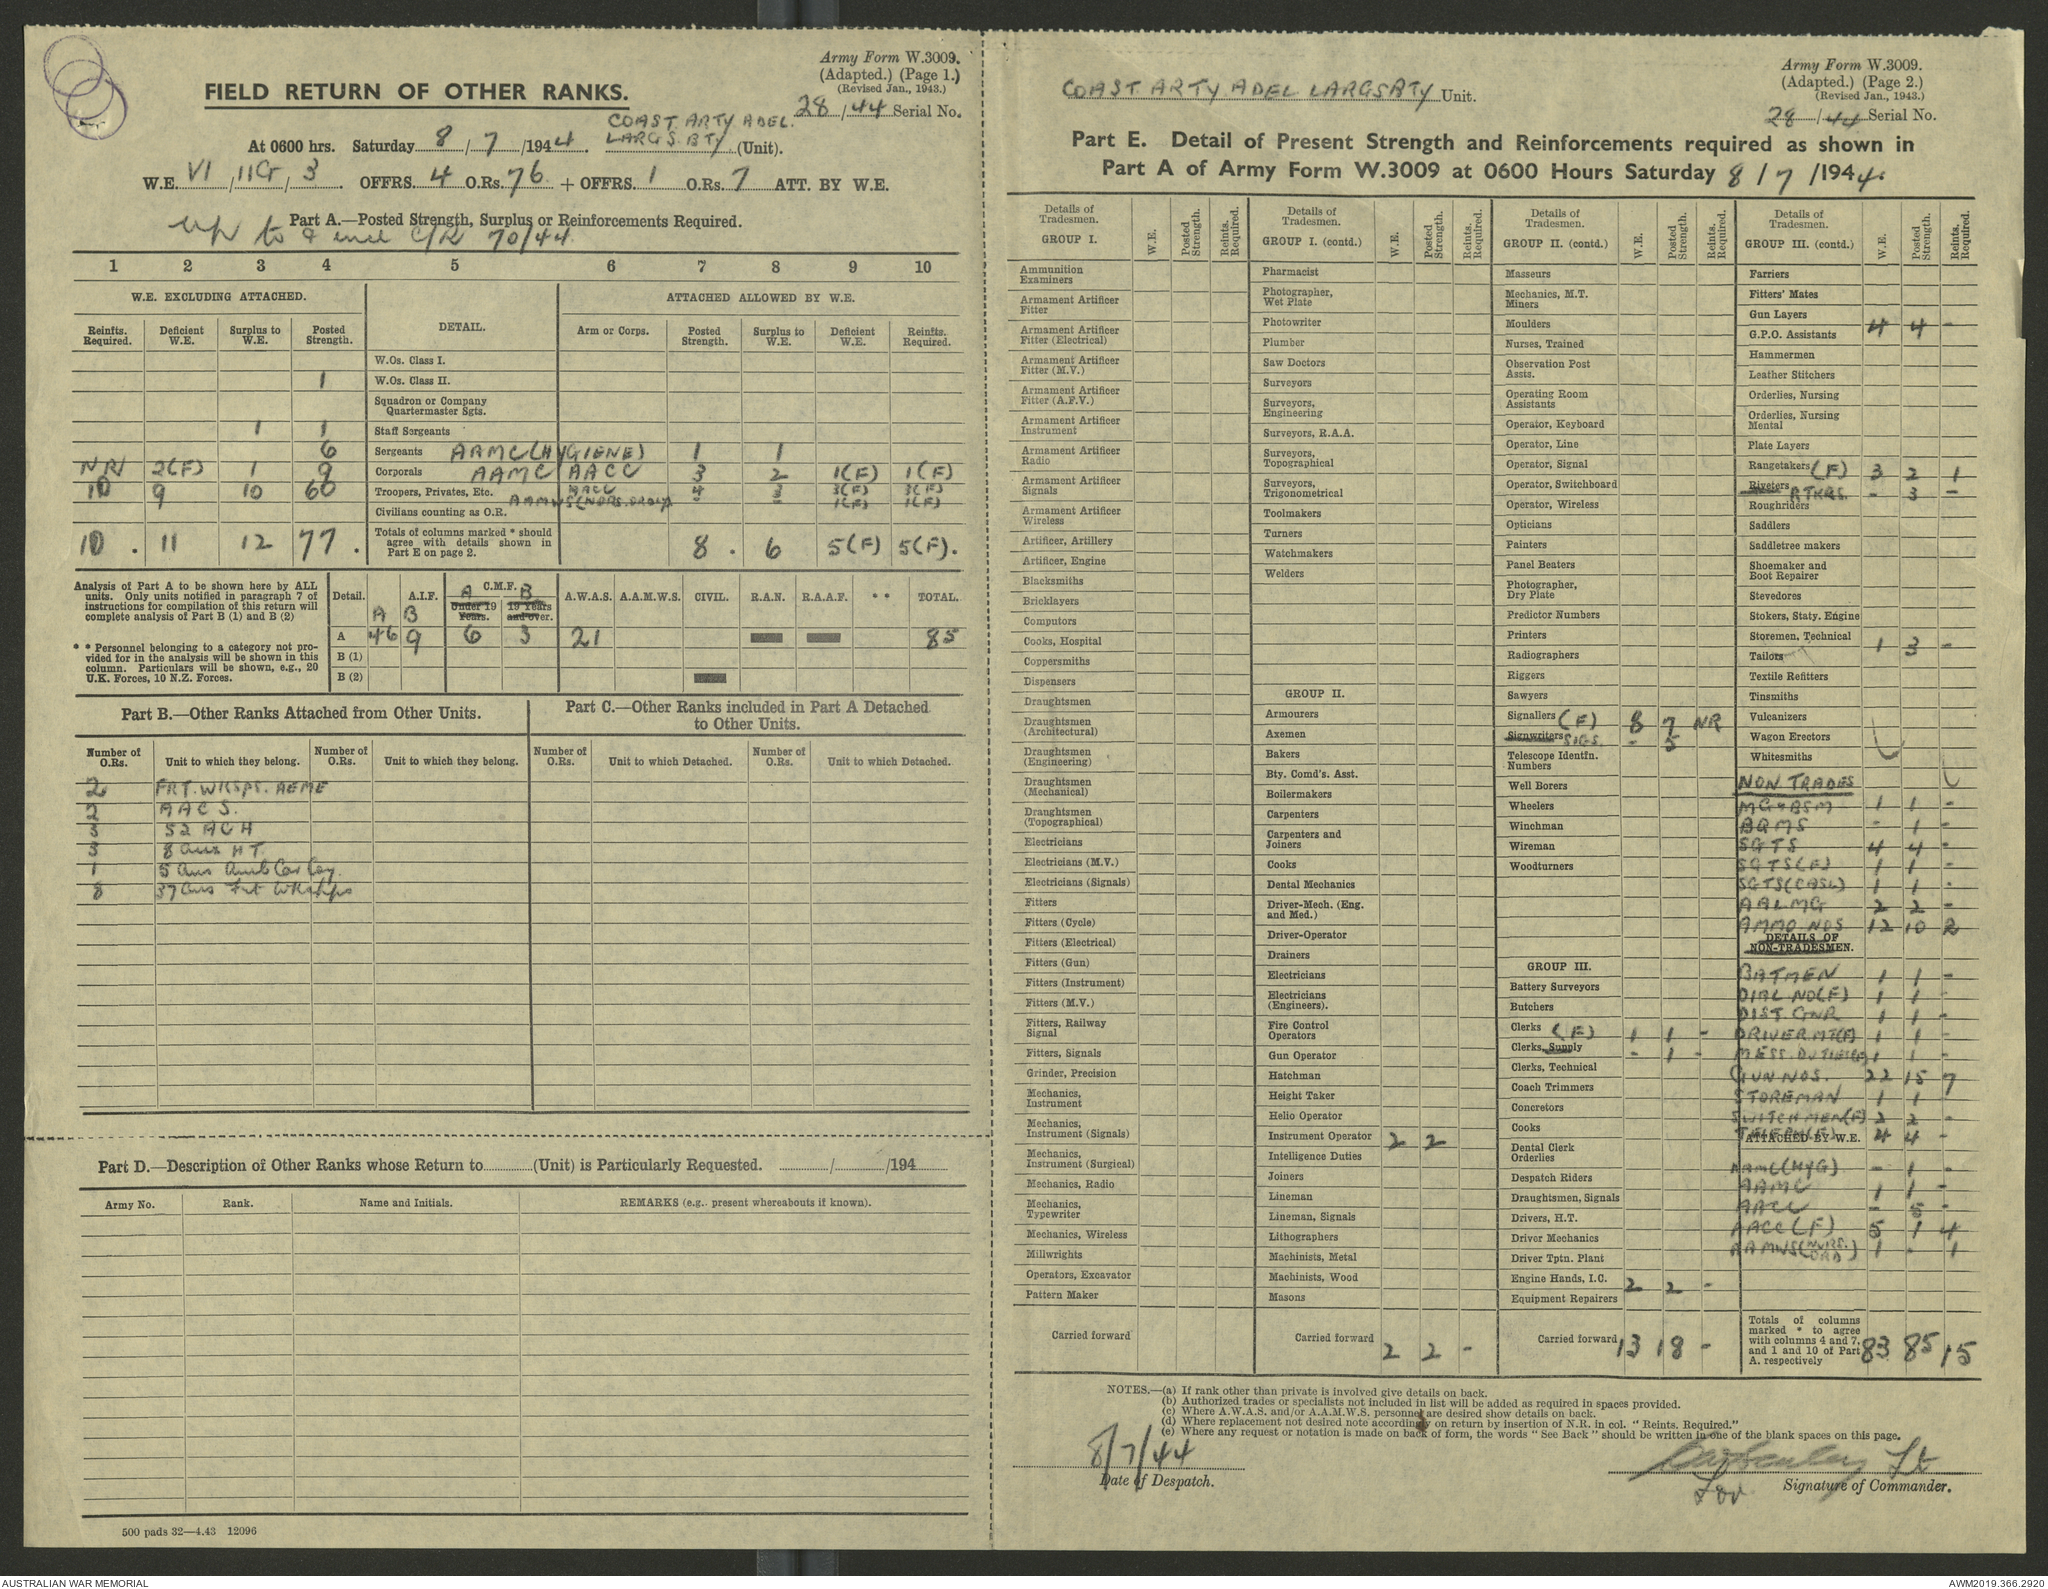 Army Form W.3009.
(Adapted.) (Page 1.)
(Revised Jan., 1943.)
28/44 Serial No.
FIELD RETURN OF OTHER RANKS.
COAST ARTY ADEL.
At 0600 hrs. Saturday 8/7/1944. LARGS BTY (Unit).
W.E. VI/11G/3. OFFRS. 4 O.Rs. 76 + OFFRS. 1 O.Rs. 7 ATT. BY W.E.
Part A.—Posted Strength, Surplus or Reinforcements Required.
up to & incl C/R 70/44
1 2 3 4 5 6 7 8 9 10
W.E. EXCLUDING ATTACHED. DETAIL. ATTACHED ALLOWED BY W.E.
Reinfts. Required. Deficient W.E. Surplus to W.E. Posted Strength. Arm or Corps. Posted Strength. Surplus to W.E. Deficient W.E. Reinfts. Required.
W.Os. Class I.
1 W.Os. Class II.
Squadron or Company
Quartermaster Sgts.
1 1 Staff Sergeants
6 Sergeants AAMC (HYGIENE) 1 1
NR1 2(F) 1 9 Corporals AAMC AACC 3 2 1(F) 1(F)
10 9 10 60 Troopers, Privates, Etc. AACC 4 3 3(F) 3(F)
Civilians counting as O.R. AAMWS (NURS. ORDLY) - - 1(F) 1(F)
10. 11 12 77. Totals of columns marked * should agree with details shown in Part E on page 2. 8. 6 5(F) 5(F).
Analysis of Part A to be shown here by ALL units. Only units notified in paragraph 7 of instructions for compilation of this return will complete analysis of Part B (1) and B (2)
* * Personnel belonging to a category not provided for in the analysis will be shown in this column. Particulars will be shown, e.g., 20 U.K. Forces, 10 N.Z. Forces.
Detail. A.I.F. C.M.F. A.W.A.S. A.A.M.W.S. CIVIL. R.A.N. R.A.A.F. * * TOTAL.
A B A Under 19 Years. B 19 Years and over.
A 46 9 6 3 21 85
B (1)
B (2)
Part B.—Other Ranks Attached from Other Units.
Number of O.Rs. Unit to which they belong. Number of O.Rs. Unit to which they belong.
2 FRT. WKSPS. AEME
2 AACS.
3 52 ACH
3 8 Aus HT.
1 5 Aus Amb Car Coy.
8 37 Aus Frt Wkshps
Part C.—Other Ranks included in Part A Detached
to Other Units.
Number of O.Rs. Unit to which Detached. Number of O.Rs. Unit to which Detached.
Part D.—Description of Other Ranks whose Return to (Unit) is Particularly Requested. / /194
Army No. Rank. Name and Initials. REMARKS (e.g. present whereabouts if known).
500 pads 32—4.43 12096
Army Form W.3009.
(Adapted.) (Page 2.)
(Revised Jan., 1943.)
28/44 Serial No.
COAST ARTY ADEL LARGS BTY Unit.
Part E. Detail of Present Strength and Reinforcements required as shown in
Part A of Army Form W.3009 at 0600 Hours Saturday 8/7/1944.
Details of Tradesmen. W.E. Posted Strength. Reints. Required.
GROUP I.
Ammunition Examiners
Armament Artificer Fitter
Armament Artificer Fitter (Electrical)
Armament Artificer Fitter (M.V.)
Armament Artificer Fitter (A.F.V.)
Armament Artificer Instrument
Armament Artificer Radio
Armament Artificer Signals
Armament Artificer Wireless
Artificer, Artillery
Artificer, Engine
Blacksmiths
Bricklayers
Computors
Cooks, Hospital
Coppersmiths
Dispensers
Draughtsmen
Draughtsmen (Architectural)
Draughtsmen (Engineering)
Draughtsmen (Mechanical)
Draughtsmen (Topographical)
Electricians
Electricians (M.V.)
Electricians (Signals)
Fitters
Fitters (Cycle)
Fitters (Electrical)
Fitters (Gun)
Fitters (Instrument)
Fitters (M.V.)
Fitters, Railway Signal
Fitters, Signals
Grinder, Precision
Mechanics, Instrument
Mechanics, Instrument (Signals)
Mechanics, Instrument (Surgical)
Mechanics, Radio
Mechanics, Typewriter
Mechanics, Wireless
Millwrights
Operators, Excavator
Pattern Maker
Carried forward
Details of Tradesmen. W.E. Posted Strength. Reints. Required.
GROUP I. (contd.)
Pharmacist
Photographer, Wet Plate
Photowriter
Plumber
Saw Doctors
Surveyors
Surveyors, Engineering
Surveyors, R.A.A.
Surveyors, Topographical
Surveyors, Trigonometrical
Toolmakers
Turners
Watchmakers
Welders
GROUP II.
Armourers
Axemen
Bakers
Bty. Comd's. Asst.
Boilermakers
Carpenters
Carpenters and Joiners
Cooks
Dental Mechanics
Driver-Mech. (Eng. and Med.)
Driver-Operator
Drainers
Electricians
Electricians (Engineers).
Fire Control Operators
Gun Operator
Hatchman
Height Taker
Helio Operator
Instrument Operator 2 2
Intelligence Duties
Joiners
Lineman
Lineman, Signals
Lithographers
Machinists, Metal
Machinists, Wood
Masons
Carried forward 2 2 -
Details of Tradesmen. W.E. Posted Strength. Reints. Required.
GROUP II. (contd.)
Masseurs
Mechanics, M.T.
Miners
Moulders
Nurses, Trained
Observation Post Assts.
Operating Room Assistants
Operator, Keyboard
Operator, Line
Operator, Signal
Operator, Switchboard
Operator, Wireless
Opticians
Painters
Panel Beaters
Photographer, Dry Plate
Predictor Numbers
Printers
Radiographers
Riggers
Sawyers
Signallers (F) 8 7 NR
Signwriters SIGS. - 5
Telescope Identfn. Numbers
Well Borers
Wheelers
Winchman
Wireman
Woodturners
GROUP III.
Battery Surveyors
Butchers
Clerks (F) 1 1 -
Clerks, Supply - 1 -
Clerks, Technical
Coach Trimmers
Concretors
Cooks
Dental Clerk Orderlies
Despatch Riders
Draughtsmen, Signals
Drivers, H.T.
Driver Mechanics
Driver Tptn. Plant
Engine Hands, I.C. 2 2 -
Equipment Repairers
Carried forward 13 18 -
Details of Tradesmen. W.E. Posted Strength. Reints Required.
GROUP III. (contd.)
Farriers
Fitters' Mates
Gun Layers
G.P.O. Assistants 4 4 -
Hammermen
Leather Stitchers
Orderlies, Nursing
Orderlies, Nursing Mental
Plate Layers
Rangetakers (F) 3 2 1
Riveters RTKRS. - 3 -
Roughriders
Saddlers
Saddletree makers
Shoemaker and Boot Repairer
Stevedores
Stokers, Staty. Engine
Storemen, Technical 1 3 -
Tailors
Textile Refitters
Tinsmiths
Vulcanizers
Wagon Erectors
Whitesmiths
NON TRADES
MG & BSM 1 1 -
BQMS - 1 -
SGTS 4 4 -
SGTS(F) 1 1 -
SGTS(CASL) 1 1 -
AALMG 2 2 -
AMMO NOS 12 10 2
DETAILS OF NON-TRADESMEN.
BATMEN 1 1 -
DIAL NO(F) 1 1 -
DIST. GNR 1 1 -
DRIVER MT(F) 1 1 -
MESS. DUTIES(F) 1 1 -
GUN NOS. 22 15 7
STOREMAN 1 1 -
SWITCHMEN(F) 2 2 -
TELEPH(F) 4 4 -
ATTACHED BY W.E.
AAMC(HYG) - 1 -
AAMC 1 1 -
AACC - 5 -
AACC(F) 5 1 4
AAMWS(NURS. ORD) 1 - 1
Totals of columns marked * to agree with columns 4 and 7, and 1 and 10 of Part A. respectively 83 85 15
NOTES.—(a) If rank other than private is involved give details on back.
(b) Authorized trades or specialists not included in list will be added as required in spaces provided.
(c) Where A.W.A.S. and/or A.A.M.W.S. personnel are desired show details on back.
(d) Where replacement not desired note accordingly on return by insertion of N.R. in col. "Reints. Required."
(e) Where any request or notation is made on back of form, the words "See Back" should be written in one of the blank spaces on this page.
8/7/44
Date of Despatch.
Lt
for Signature of Commander.
AUSTRALIAN WAR MEMORIAL
AWM2019.366.2920